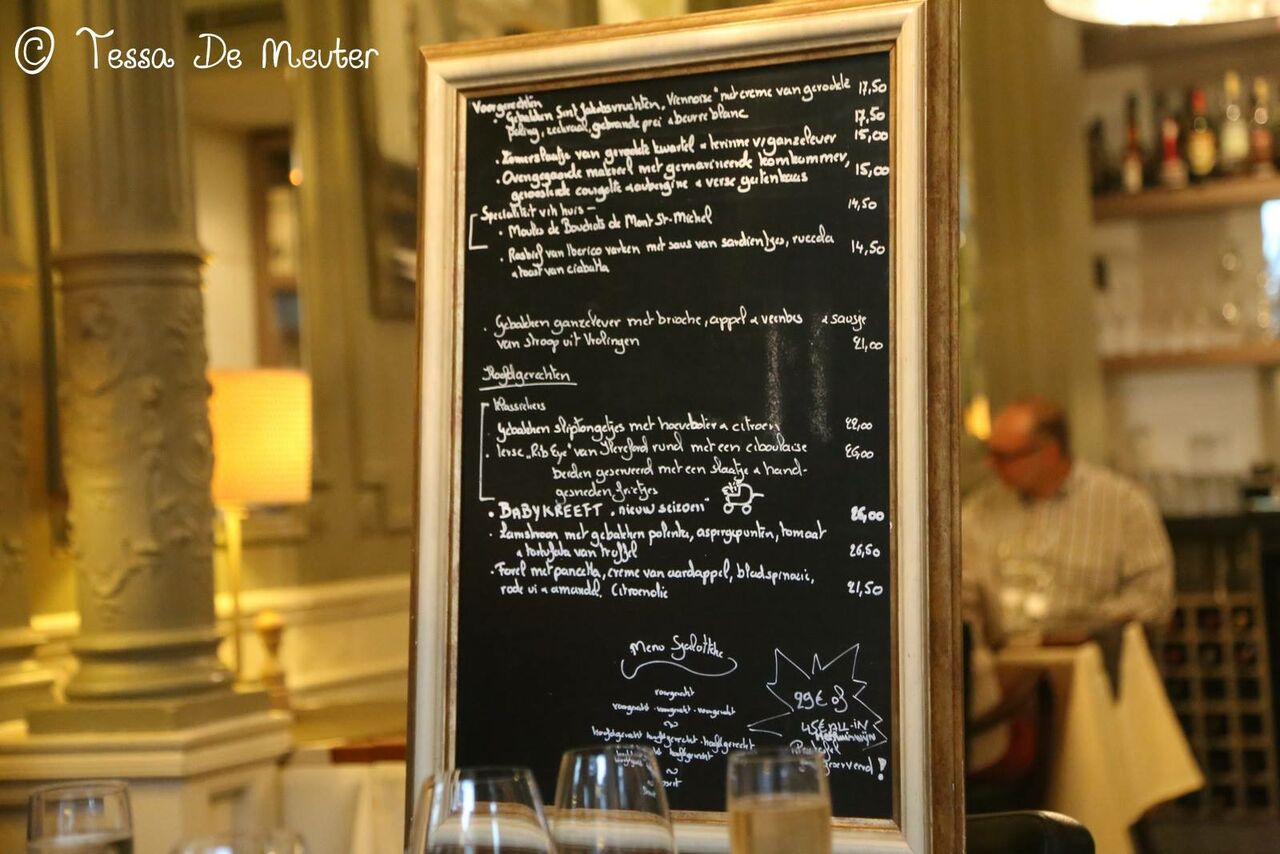 © Tessa De Meuter
Voorgerechten
Gebakken Sint Jakobsvruchten, Viennoise" met creme van gerookte 17,50
paling, zeekraal, gebrande prei & beurre blanc 17,50
. Zomerslaatje van gerookte kwartel & terrinne v/ganzelever 15,00
. Ovengegaarde makreel met gemarineerde komkommer,
geroosterde courgette & aubergine & verse geitenkaas 15,00
Specialiteit v/h huis -
. Moules de Bouchots de Mont St-Michel 14,50
. Rosbief van Iberico varken met saus van sardientjes, ruccola 14,50
& toast van ciabatta
. Gebakken ganzelever met brioche, appel & veenbes & sausje
van stroop uit Vrolingen 21,00
Hoofdgerechten
Klassiekers
. Gebakken sliptongetjes met hoeveboter & citroen 22,00
. Ierse "Rib Eye" van Hereford rund met een ciboulaise 26,00
beiden geserveerd met een slaatje & hand-
gesneden frietjes
. BABYKREEFT . nieuw seizoen" 26,00
. Lamskroon met gebakken polenta, aspergepunten, tomaat
& tartufata van truffel 26,50
. Forel met pancetta, creme van aardappel, bladspinazie,
rode ui & amandel. Citroenolie 21,50
Menu
voorgerecht
voorgerecht - voorgerecht - voorgerecht
~
Hoofdgerecht hoofdgerecht - hoofdgerecht
hoofdgerecht
~
29€ of
45€ ALL-IN
!